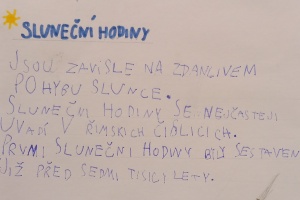 SLUNEČNÍ HODINY
JSOU ZÁVISLÉ NA ZDANLIVÉM
POHYBU SLUNCE.
SLUNEČNÍ HODINY SE NEJČASTĚJI
UVÁDÍ V ŘÍMSKÍCH ČÍSLICÍCH.
PRVNÍ SLUNEČNÍ HODINY BYLY SESTAVEN
JIŽ PŘED SEDMI TISÍCI LETY.